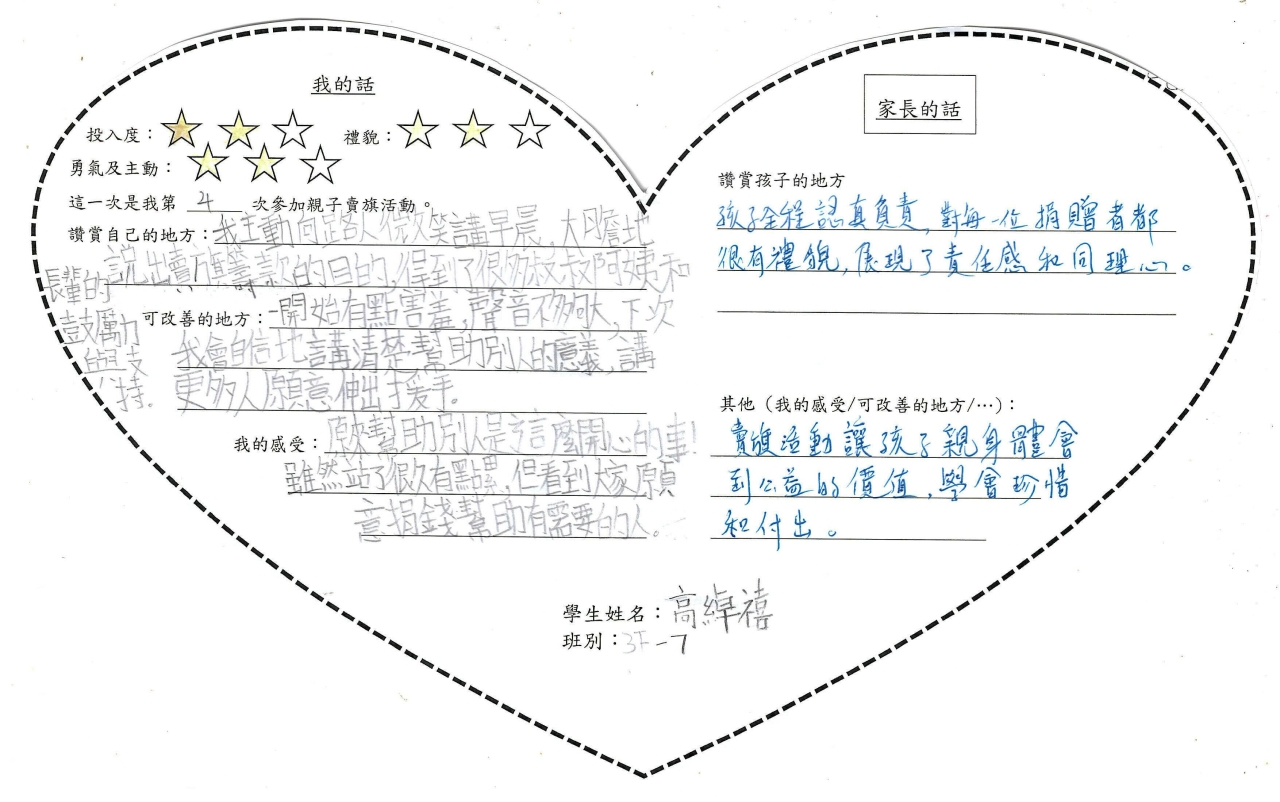 我的話
投入度：☆☆☆ 禮貌：☆☆☆
勇氣及主動：☆☆☆
這一次是我第 4 次參加親子賣旗活動。
讚賞自己的地方：我主動向路人微笑講早晨，大膽地
說出賣旗籌款的目的，得到了很多叔叔阿姨和
長輩的
鼓勵
與支
持.
可改善的地方：一開始有點害羞，聲音不夠大，下次
我會自信地講清楚幫助別人的意義，講
更多人願意伸出援手.
我的感受：原來幫助別人是這麼開心的事!
雖然站了很久有點累，但看到大家願
意捐錢幫助有需要的人。
家長的話
讚賞孩子的地方
孩子全程認真負責，對每一位捐贈者都
很有禮貌，展現了責任感和同理心。
其他（我的感受/可改善的地方/…）：
賣旗活動讓孩子親身體會
到公益的價值，學會珍惜
和付出。
學生姓名：高綽禧
班別：3F-7